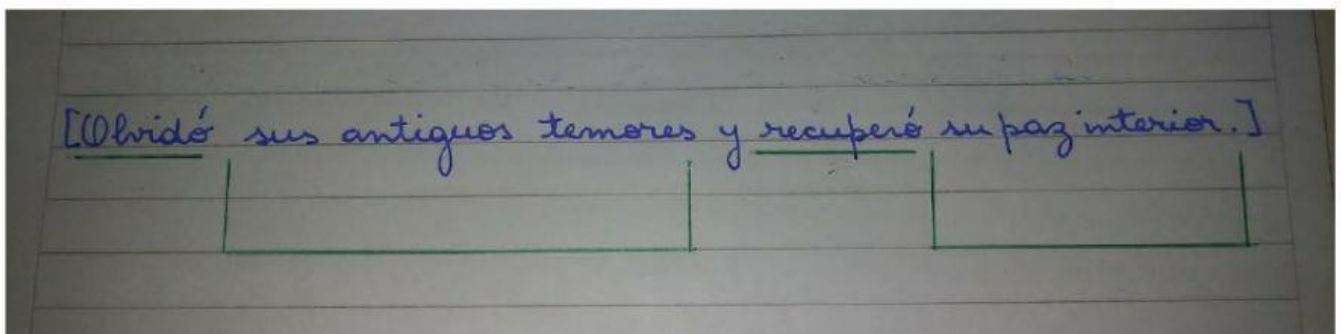 [Olvidó sus antiguos temores y recuperó su paz interior.]